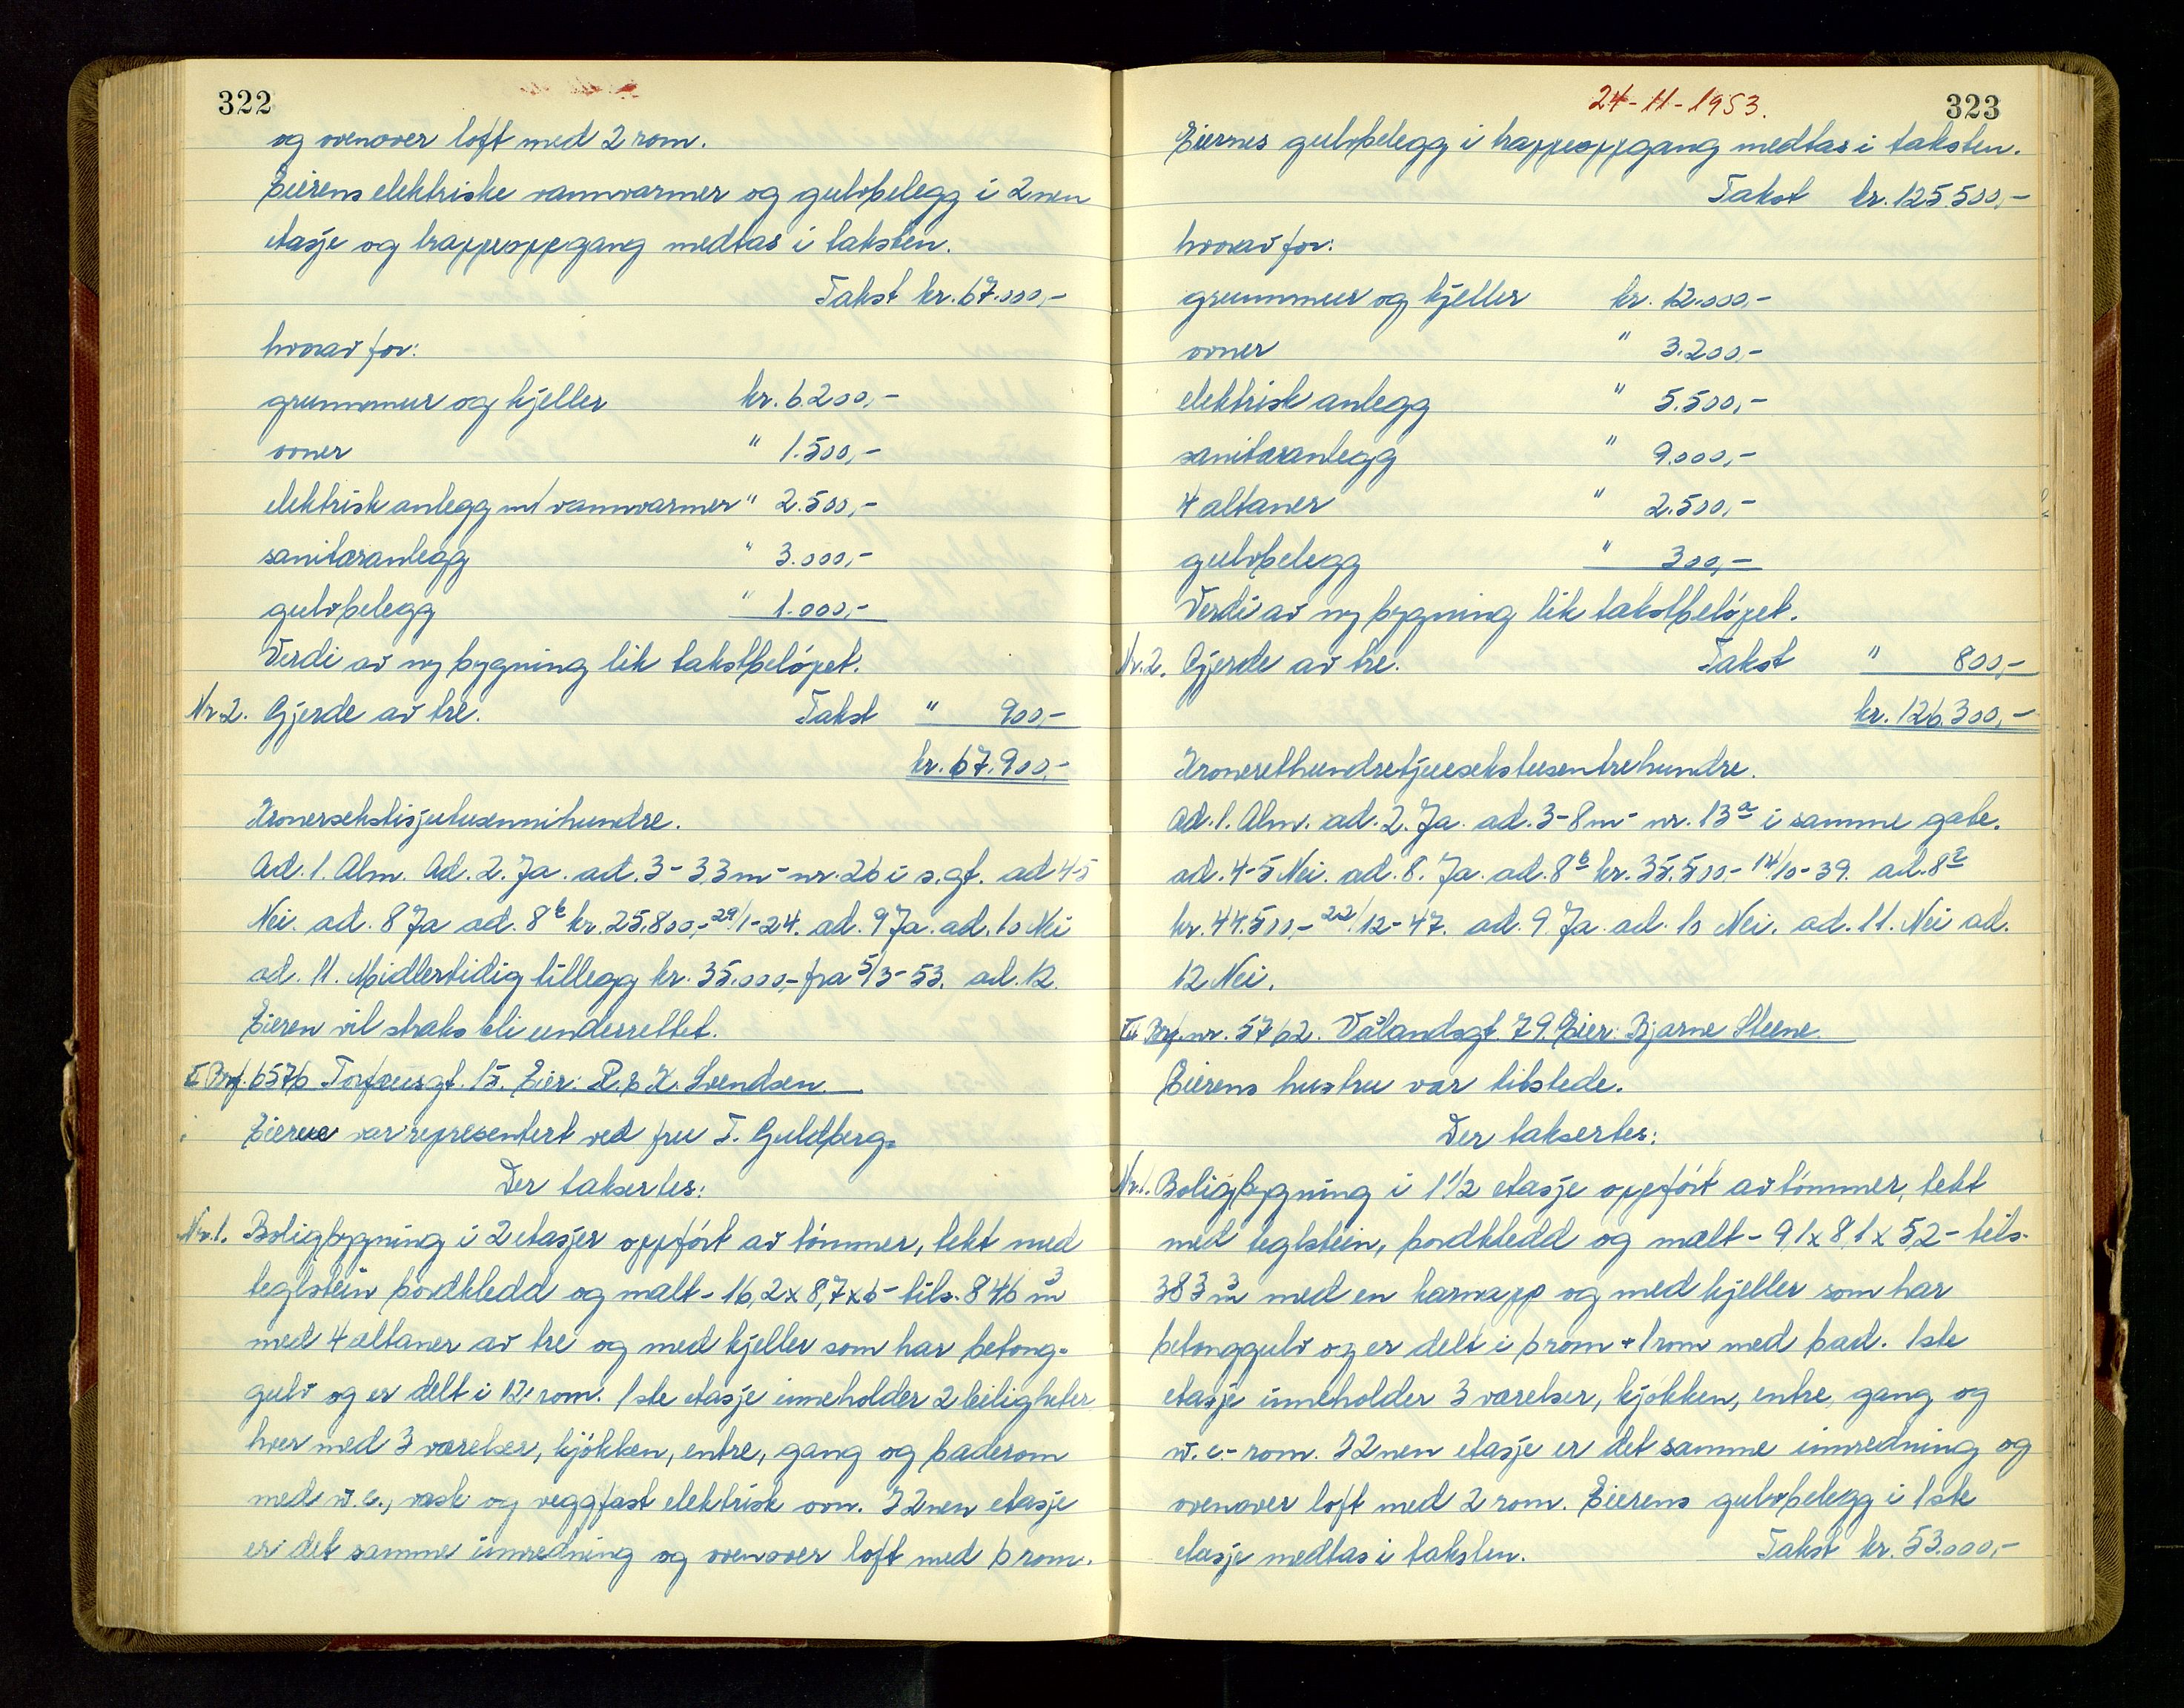 322
og ovenover loft med 2 rom.
Eierens elektriske vannvarmer og gulvbelegg i 2nen
etasje og trappeoppgang medtas i taksten.
Takst kr. 67.000,-
hvorav for:
grunnmur og kjeller kr. 6.200,-
ovner " 1.500,-
elektrisk anlegg m/ vannvarmer " 2.500,-
sanitæranlegg " 3.000,-
gulvbelegg " 1.000,-
Verdi av ny bygning lik takstbeløpet.
Nr. 2. Gjerde av tre. Takst " 900,-
kr. 67.900,-
Kronersekstisjutusennihundre.
Ad. 1. Alm. Ad. 2. Ja. ad. 3 - 3,3 m - nr. 26 i s. gt. ad 4-5
Nei. ad. 8 Ja ad. 8b kr. 25.800,- 29/1-24. ad. 9 Ja. ad. 10 Nei
ad. 11. Midlertidig tillegg kr. 35.000,- fra 5/3-53. ad. 12.
Eieren vil straks bli underrettet.
II Brf. 6576 Torfæusgt. 15. Eier: R. & K. Svendsen.
Eierne var representert ved fru T. Guldberg.
Der taksertes:
Nr. 1. Boligbygning i 2 etasjer oppført av tømmer, tekt med
teglstein bordkledd og malt - 16,2 x 8,7 x 6 - tils. 846 m3
med 4 altaner av tre og med kjeller som har betong-
gulv og er delt i 12 rom. 1ste etasje inneholder 2 leiligheter
hver med 3 værelser, kjøkken, entre, gang og baderom
med w.c., vask og veggfast elektrisk ovn. I 2nen etasje
er det samme innredning og ovenover loft med 6 rom.
24-11-1953.
323
Eiernes gulvbelegg i trappeoppgang medtas i taksten.
Takst kr. 125.500,-
hvorav for:
grunnmur og kjeller kr. 12.000,-
ovner " 3.200,-
elektrisk anlegg " 5.500,-
sanitæranlegg " 9.000,-
4 altaner " 2.500,-
gulvbelegg " 300,-
Verdi av ny bygning lik takstbeløpet.
Nr. 2. Gjerde av tre. Takst " 800,-
kr. 126.300,-
Kronerethundretjuesekstusentrehundre.
Ad. 1. Alm. ad. 2. Ja. ad. 3 - 8 m - nr. 13a i samme gate.
ad. 4-5 Nei. ad. 8. Ja. ad. 8b kr. 35.500,- 14/10-39. ad. 8c
kr. 44.500,- 22/12-47. ad. 9 Ja. ad. 10 Nei. ad. 11. Nei ad.
12 Nei.
III Brf. nr. 5762. Vålandsgt. 79. Eier: Bjarne Steene.
Eierens hustru var tilstede.
Der taksertes:
Nr. 1. Boligbygning i 1 1/2 etasje oppført av tømmer, tekt
med teglstein, bordkledd og malt - 9,1 x 8,1 x 5,2 - tils.
383 m3 med en karnapp og med kjeller som har
betonggulv og er delt i 6 rom + 1 rom med bad. 1ste
etasje inneholder 3 værelser, kjøkken, entre, gang og
w.c.-rom. I 2nen etasje er det samme innredning og
ovenover loft med 2 rom. Eierens gulvbelegg i 1ste
etasje medtas i taksten. Takst kr. 53.000,-